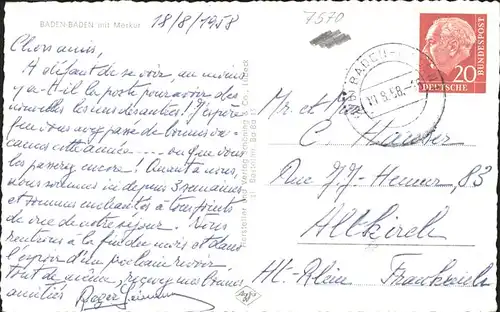 BADEN-BADEN mit Merkur
18/8/1958
7570
Chers amis,
A défaut de se voir, au moins
y a-t-il la poste pour avoir des
nouvelles les uns des autres! J'espère
que vous avez passé de bonnes va-
cances cette année ..... ou que vous
les passerez encore! Quant à nous,
nous sommes ici depuis 3 semaines
et sommes enchantés à tous points
de vue de notre séjour. Nous
rentrons à la fin du mois et dans
l'espoir d'un prochain revoir,
tout de même, recevez nos bonnes
amitiés Roger
Hersteller und Verlag Schöning & Co., Lübeck
BADEN-
20
DEUTSCHE
BUNDESPOST
Mr et Mme
C. Hauser
Rue J.J. Henner, 83
Altkirch
Ht-Rhin Frankreich